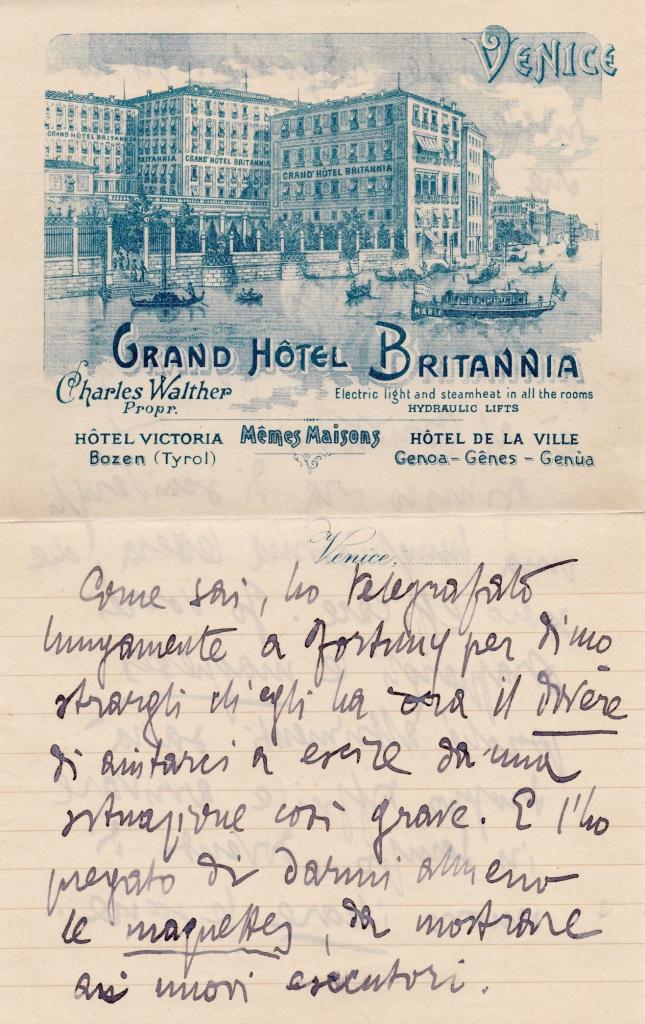 VENICE
GRAND HÔTEL BRITANNIA
BRITANNIA
GRAND HÔTEL BRITANNIA
GRAND HÔTEL BRITANNIA
MARIA
GRAND HÔTEL BRITANNIA
Charles Walther
Propr.
Electric light and steamheat in all the rooms
HYDRAULIC LIFTS
HÔTEL VICTORIA
Bozen (Tyrol)
Mêmes Maisons
HÔTEL DE LA VILLE
Genoa - Gênes - Genùa
Venice,
Come sai, ho telegrafato
lungamente a Fortuny per dimo
strargli ch'egli ha ora il dovere
di aiutarci a escire da una
situazione così grave. E l'ho
pregato di darmi almeno
le maquettes, da mostrare
ai nuovi esecutori.